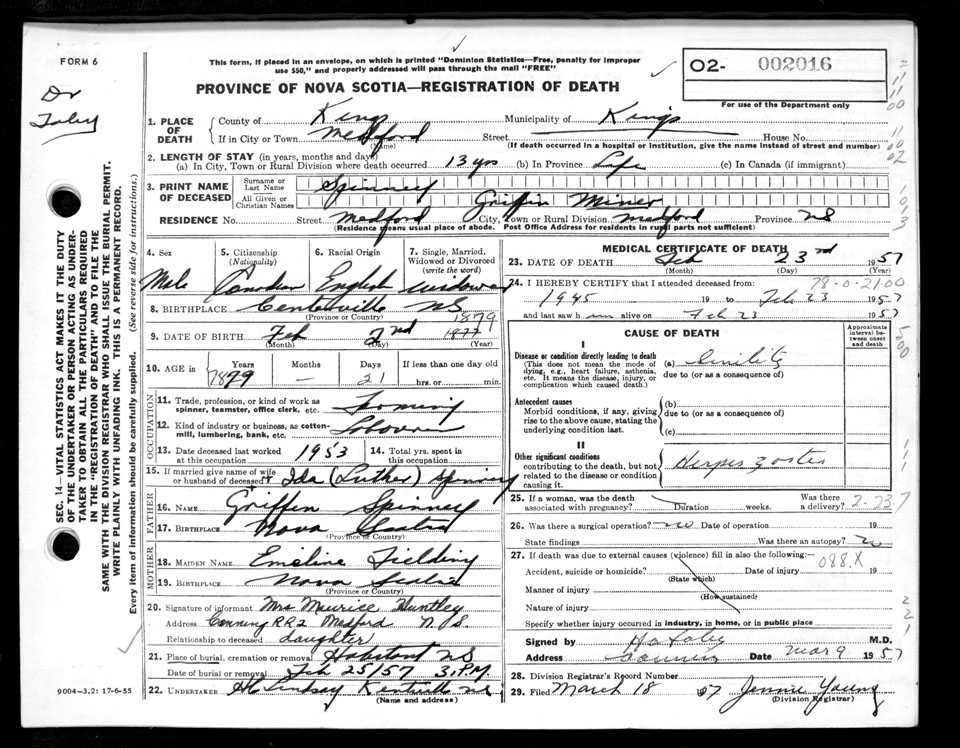 FORM 6
This form, if placed in an envelope, on which is printed "Dominion Statistics—Free, penalty for improper
use $50," and properly addressed will pass through the mail "FREE"
02- 002016
For use of the Department only
PROVINCE OF NOVA SCOTIA—REGISTRATION OF DEATH
Dr
SEC. 14—VITAL STATISTICS ACT MAKES IT THE DUTY
OF THE UNDERTAKER OR PERSON ACTING AS UNDER-
TAKER TO OBTAIN ALL THE PARTICULARS REQUIRED
IN THE "REGISTRATION OF DEATH" AND TO FILE THE
SAME WITH THE DIVISION REGISTRAR WHO SHALL ISSUE THE BURIAL PERMIT.
WRITE PLAINLY WITH UNFADING INK. THIS IS A PERMANENT RECORD.
Every item of information should be carefully supplied. (See reverse side for instructions.)
1. PLACE OF DEATH
County of Kings Municipality of Kings
If in City or Town Medford Street House No.
(Name) (If death occurred in a hospital or institution, give the name instead of street and number)
2. LENGTH OF STAY (in years, months and days)
(a) In City, Town or Rural Division where death occurred 13 yrs (b) In Province Life (c) In Canada (if immigrant)
3. PRINT NAME OF DECEASED
Surname or Last Name Spinney
All Given or Christian Names Griffin Miner
RESIDENCE No. Street Medford City, Town or Rural Division Medford Province NS
(Residence means usual place of abode. Post Office Address for residents in rural parts not sufficient)
4. Sex Male
5. Citizenship (Nationality) Canadian
6. Racial Origin English
7. Single, Married, Widowed or Divorced (write the word) widower
8. BIRTHPLACE Centerville NS
(Province or Country)
1879
9. DATE OF BIRTH Feb 2nd 1877
(Month) (Day) (Year)
10. AGE in Years Months Days If less than one day old
79 — 21 hrs. or min.
OCCUPATION
11. Trade, profession, or kind of work as
spinner, teamster, office clerk, etc. Farming
12. Kind of industry or business, as cotton-
mill, lumbering, bank, etc. Labourer
13. Date deceased last worked at this occupation 1953
14. Total yrs. spent in this occupation
15. If married give name of wife
or husband of deceased Ida (Luther) Spinney
FATHER
16. NAME Griffen Spinney
17. BIRTHPLACE Nova Scotia
(Province or Country)
MOTHER
18. MAIDEN NAME Emeline Fielding
19. BIRTHPLACE Nova Scotia
(Province or Country)
20. Signature of informant Mrs Maurice Huntley
Address Canning RR2 Medford N.S.
Relationship to deceased daughter
21. Place of burial, cremation or removal Habitant NS
Date of burial or removal Feb 25/57 3 P.M
22. UNDERTAKER Lindsay Kentville NS
(Name and address)
9004-3.2: 17-6-55
MEDICAL CERTIFICATE OF DEATH
23. DATE OF DEATH Feb 23rd 1957
(Month) (Day) (Year)
78-0-21-00
24. I HEREBY CERTIFY that I attended deceased from:
1945 19 to Feb 23 1957
and last saw him alive on Feb 23 1957
CAUSE OF DEATH
Approximate interval between onset and death
I
Disease or condition directly leading to death (a) Senility
(This does not mean the mode of due to (or as a consequence of)
dying, e.g., heart failure, asthenia,
etc. It means the disease, injury, or
complication which caused death.)
Antecedent causes (b)
Morbid conditions, if any, giving due to (or as a consequence of)
rise to the above cause, stating the
underlying condition last. (c)
II
Other significant conditions
contributing to the death, but not Herpes zoster
related to the disease or condition
causing it.
25. If a woman, was the death Was there
associated with pregnancy? Duration weeks. a delivery?
2-23-7
26. Was there a surgical operation? no Date of operation 19
State findings Was there an autopsy? no
27. If death was due to external causes (violence) fill in also the following:—
088.X
Accident, suicide or homicide? Date of injury 19
(State which)
Manner of injury
(How sustained)
Nature of injury
Specify whether injury occurred in industry, in home, or in public place
Signed by M.D.
Address Canning Date Mar 9 1957
28. Division Registrar's Record Number
29. Filed March 18 57 Jennie Young
(Division Registrar)